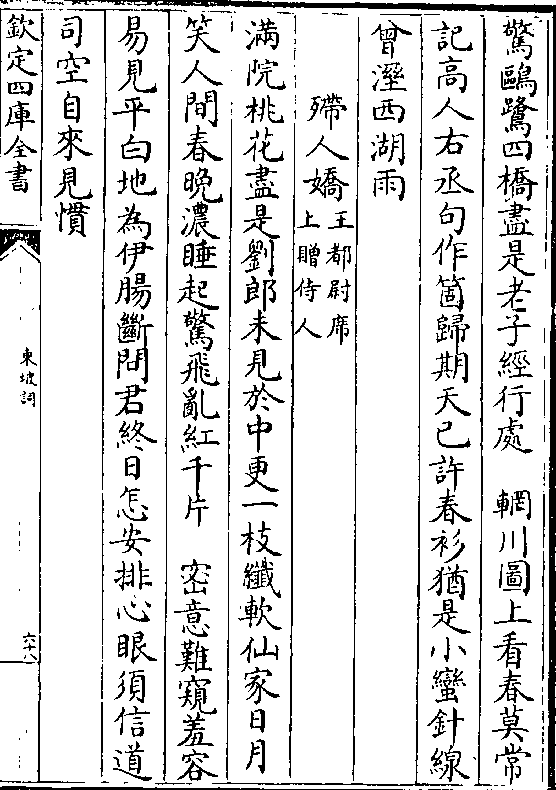 驚鷗鷺四橋盡是老子經行處　輞川圖上看春莫常
記高人右丞句作箇歸期天已許春衫猶是小蠻針線
曾溼西湖雨
殢人嬌王都尉席上贈侍人
滿院桃花盡是劉郎未見於中更一枝纖軟仙家日月
笑人間春晚濃睡起驚飛亂紅千片　密意難窺羞容
易見平白地為伊腸斷問君終日怎安排心眼須信道
司空自來見慣
欽定四庫全書
東坡詞
六十八